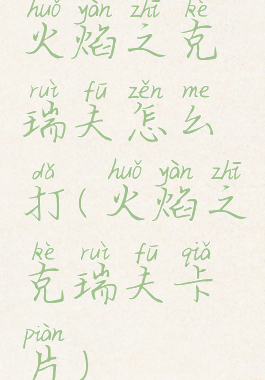 huǒ yàn zhī kè
火焰之克
ruì fū zěn me
瑞夫怎么
dǎ huǒ yàn zhī
打(火焰之
kè ruì fū qiǎ
克瑞夫卡
piàn
片)